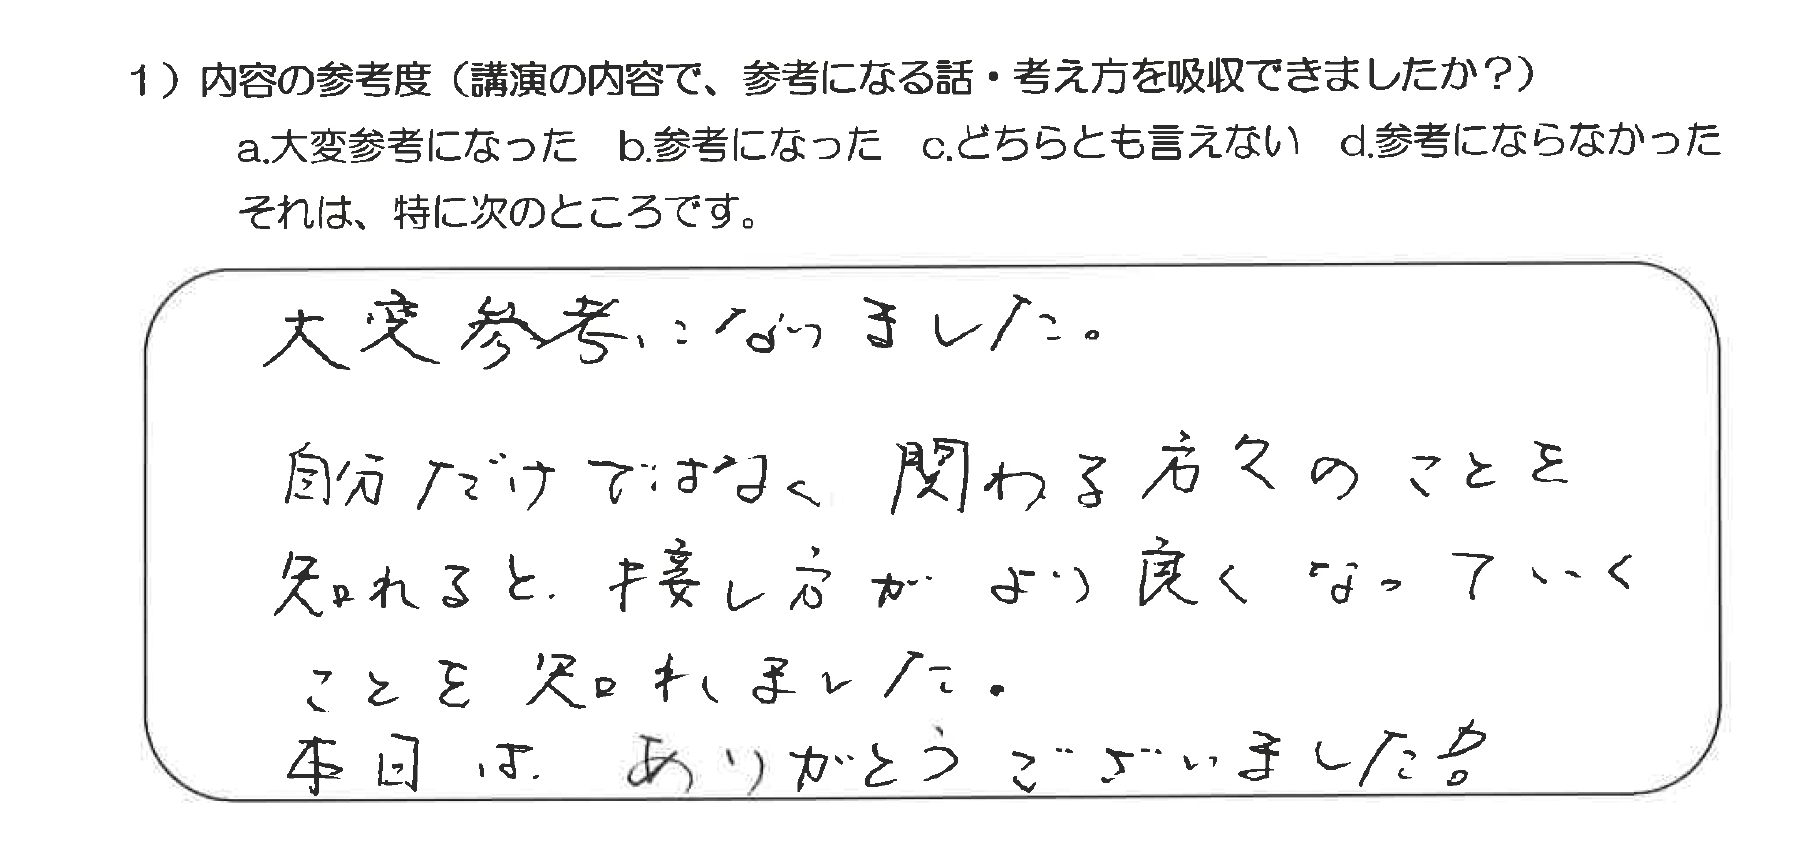 1）内容の参考度（講演の内容で、参考になる話・考え方を吸収できましたか？）
a.大変参考になった　b.参考になった　c.どちらとも言えない　d.参考にならなかった
それは、特に次のところです。
大変参考になりました。
自分だけではなく関わる方々のことを
知れると、接し方がより良くなっていく
ことを知れました。
本日は、ありがとうございました!!